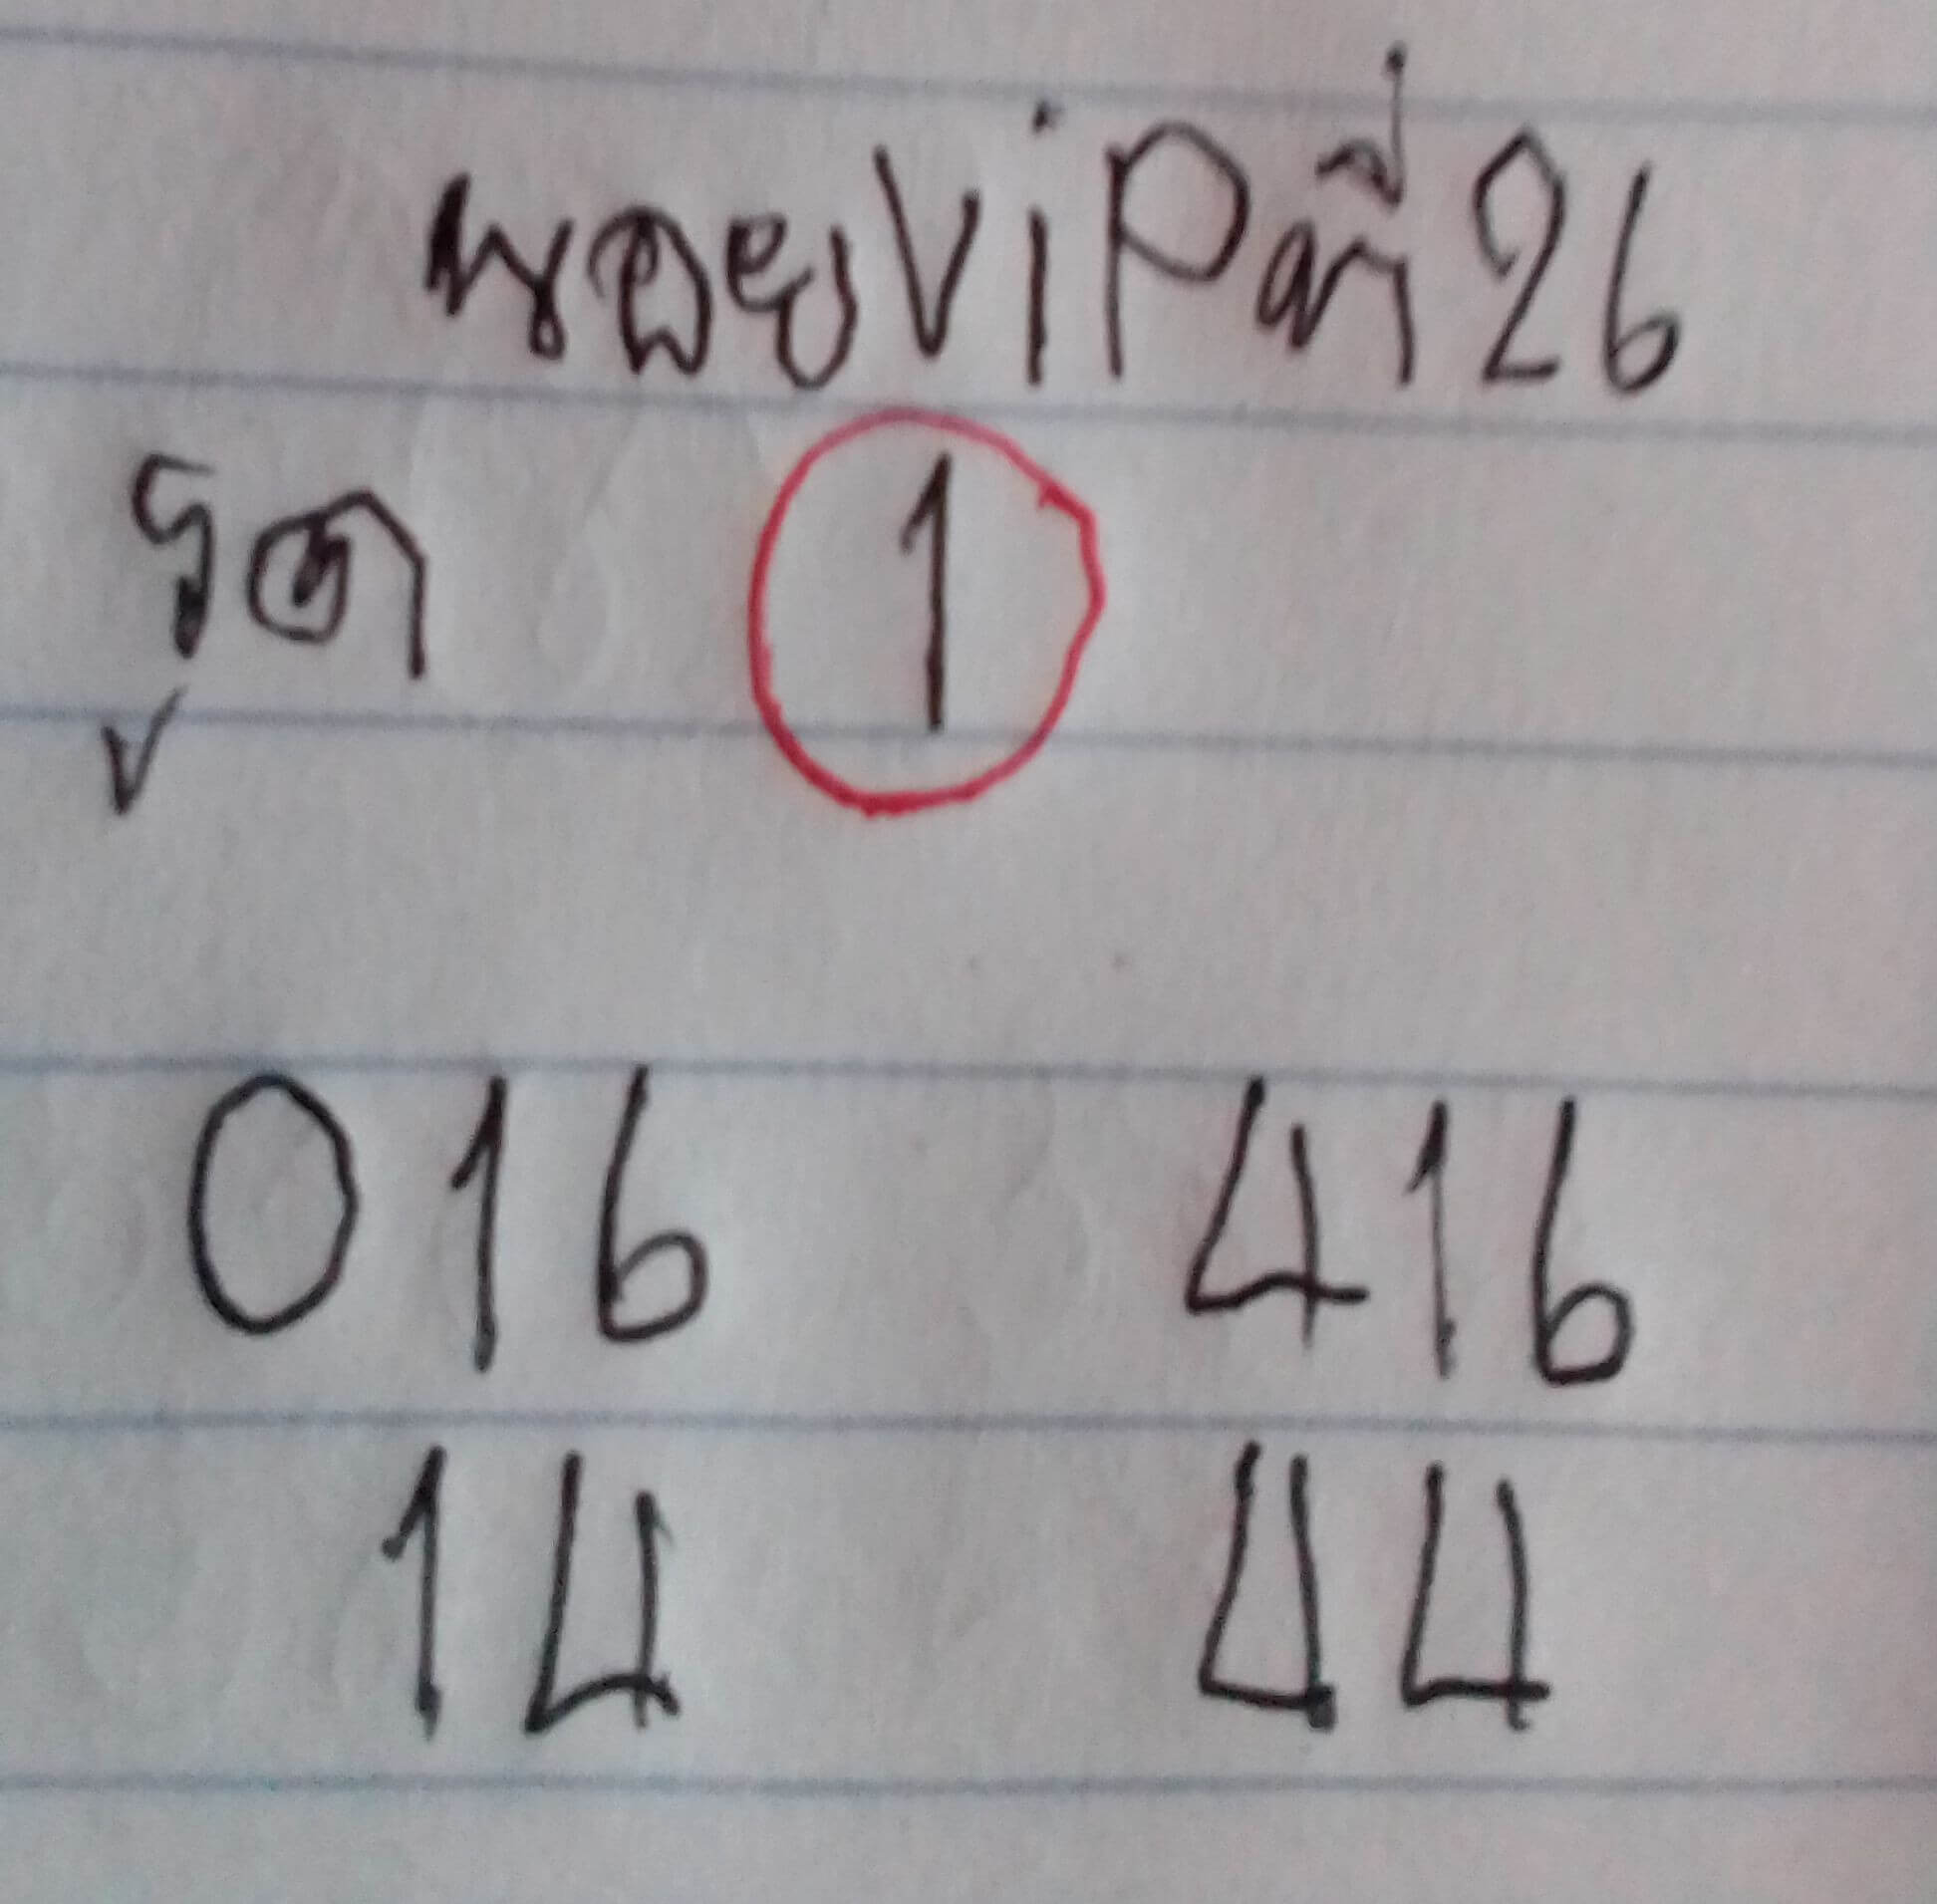 นอยViPที่26
รูด 1
016 416
14 44